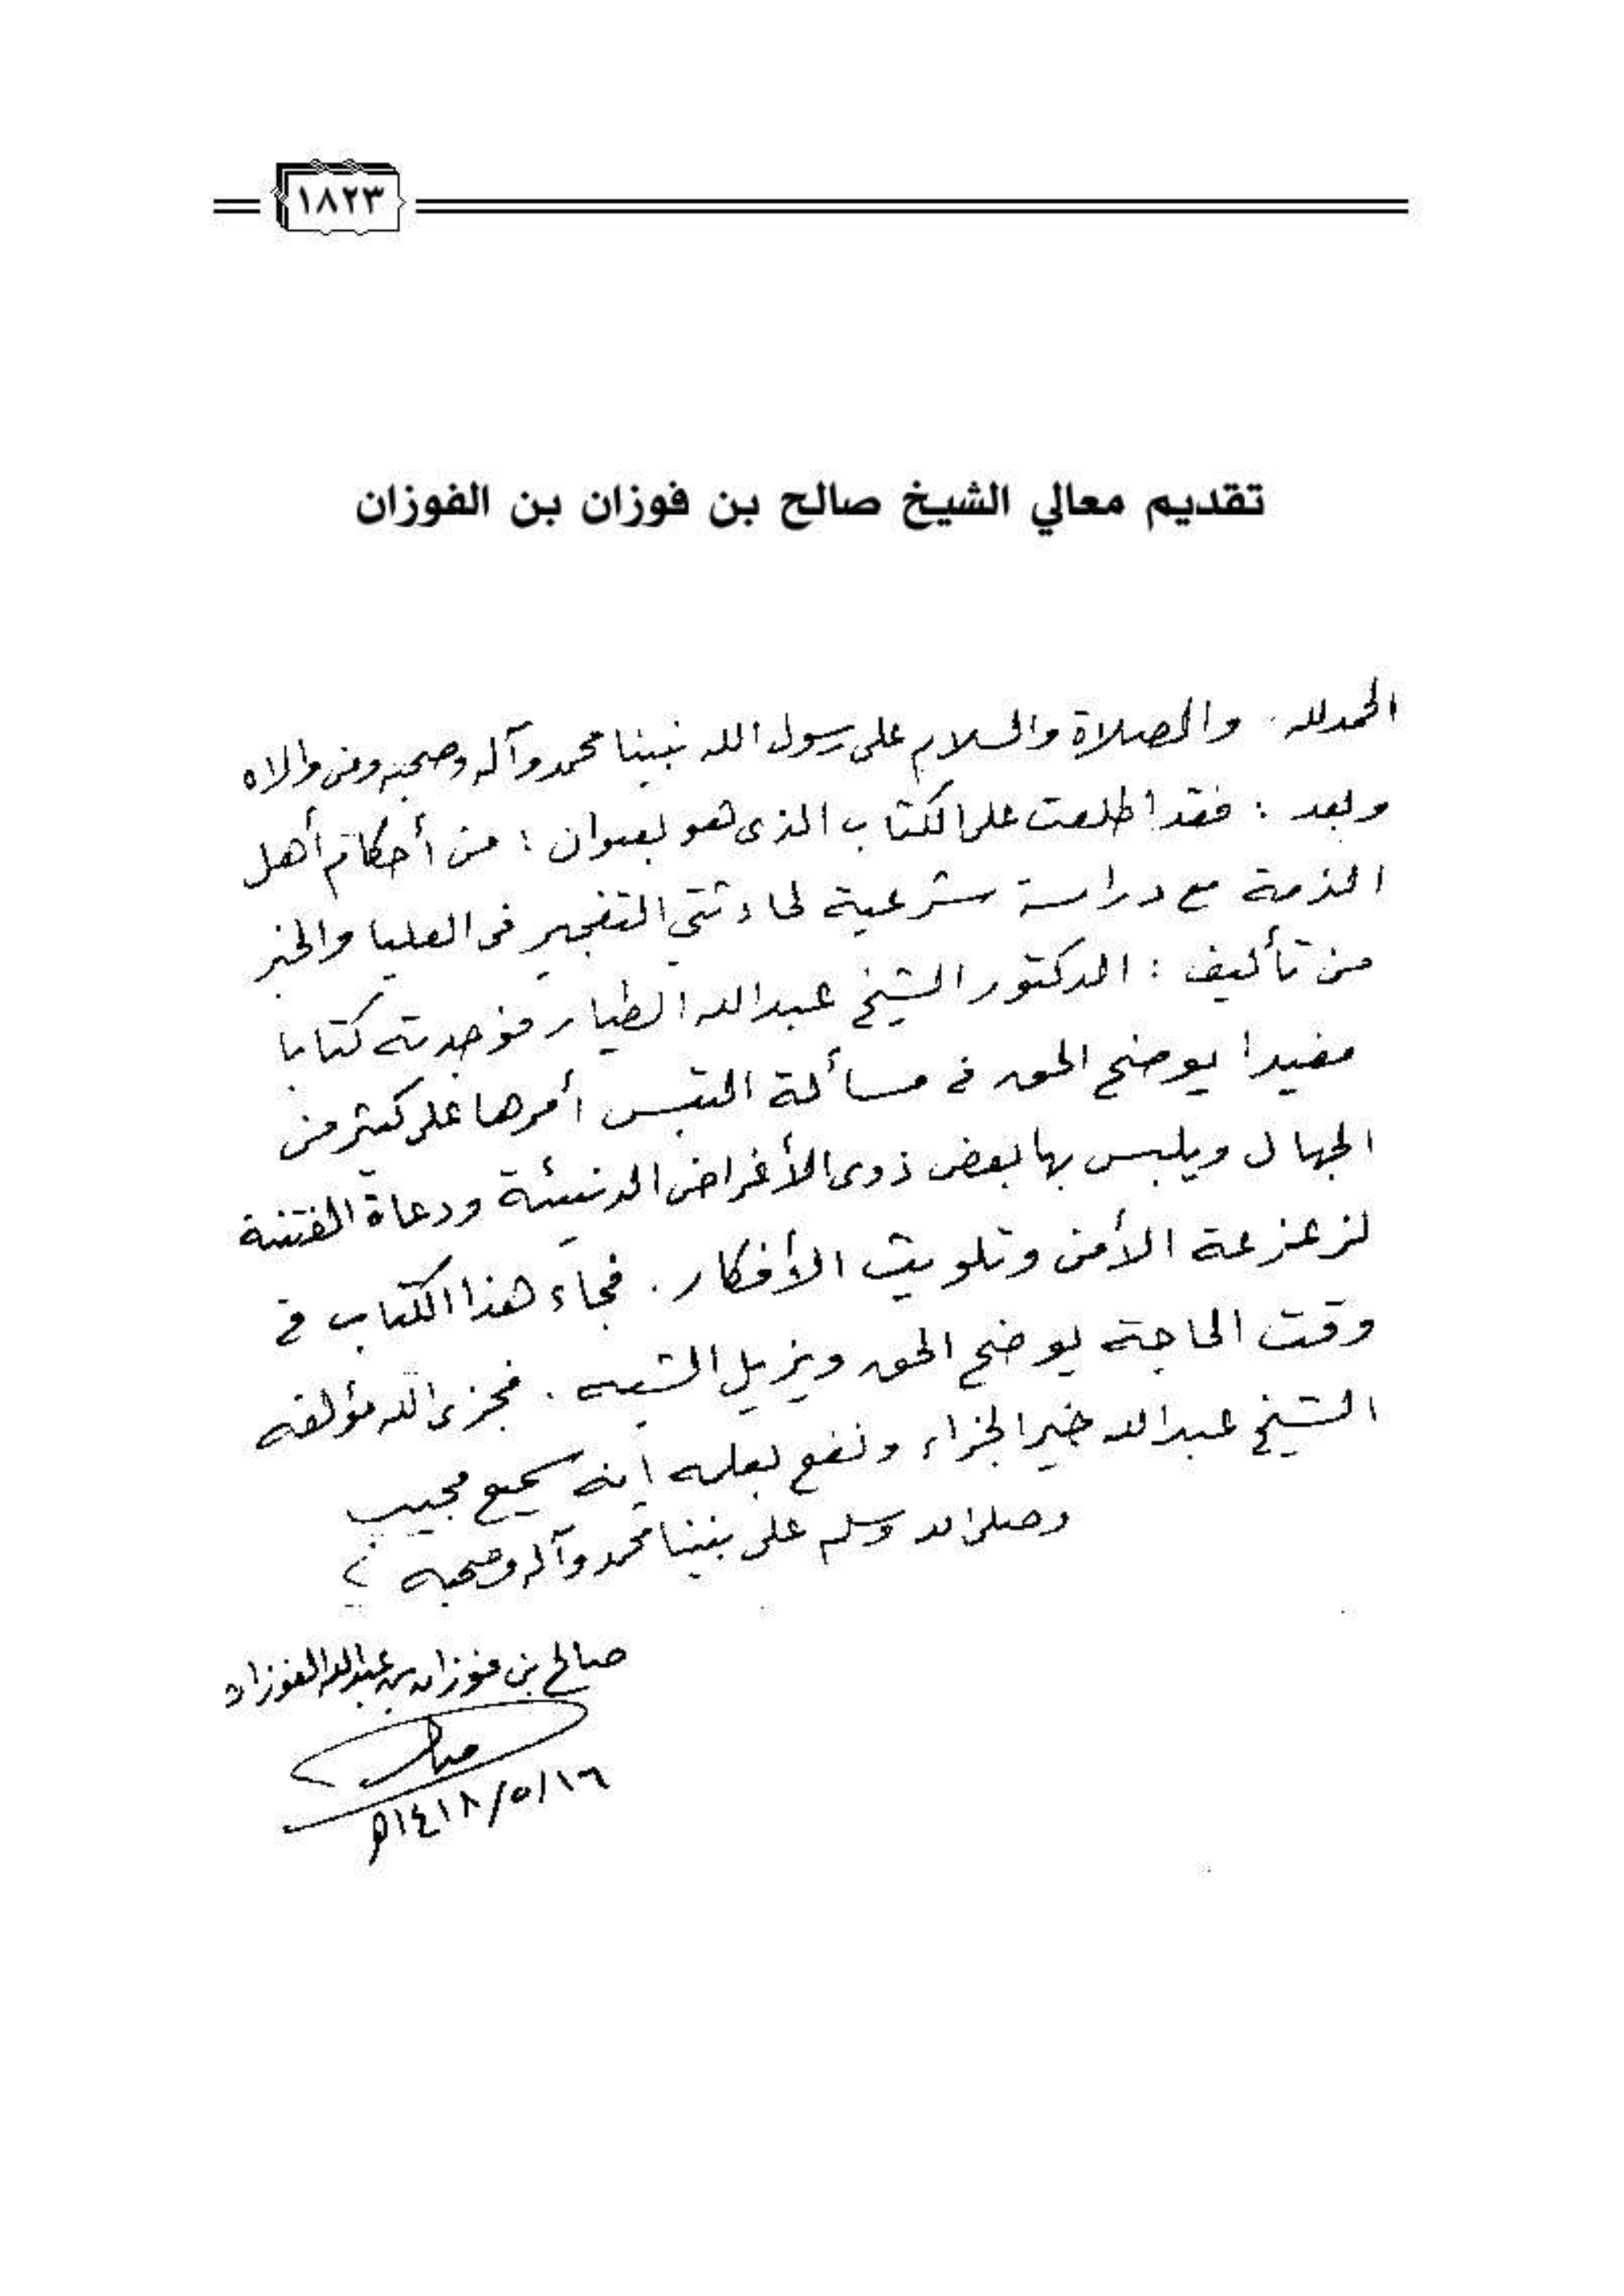 ١٨٢٣
تقديم معالي الشيخ صالح بن فوزان بن الفوزان
الحمد لله. والصلاة والسلام على رسول الله نبينا محمد وآله وصحبه ومن والاه
وبعد : فقد اطلعت على الكتاب الذى هو بعنوان : من أحكام أهل
الذمة مع دراسة شرعية لحادثتي التفجير فى العليا والخبر
من تأليف : الدكتور الشيخ عبدالله الطيار فوجدته كتابا
مفيدا يوضح الحق فى مسألة التبس أمرها على كثير من
الجهال ويلبس بها بعض ذوى الأغراض الدنيئة ودعاة الفتنة
لزعزعة الأمن وتلويث الأفكار . فجاء هذا الكتاب فى
وقت الحاجة يوضح الحق ويزيل الشبه . فجزى الله مؤلفه
الشيخ عبدالله خير الجزاء ونفع بعلمه إنه سميع مجيب
وصلى الله وسلم على نبينا محمد وآله وصحبه
صالح بن فوزان بن عبدالله الفوزان
صالح
١٤١٨/٥/١٦هـ